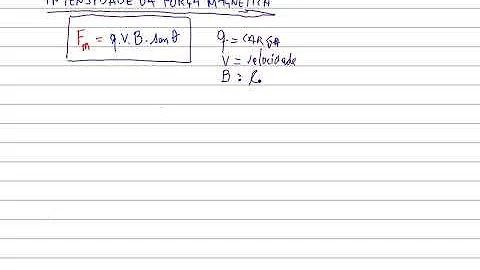 INTENSIDADE DA FORÇA MAGNÉTICA
Fm = q.V.B.senθ
q = CARGA
V = velocidade
B =